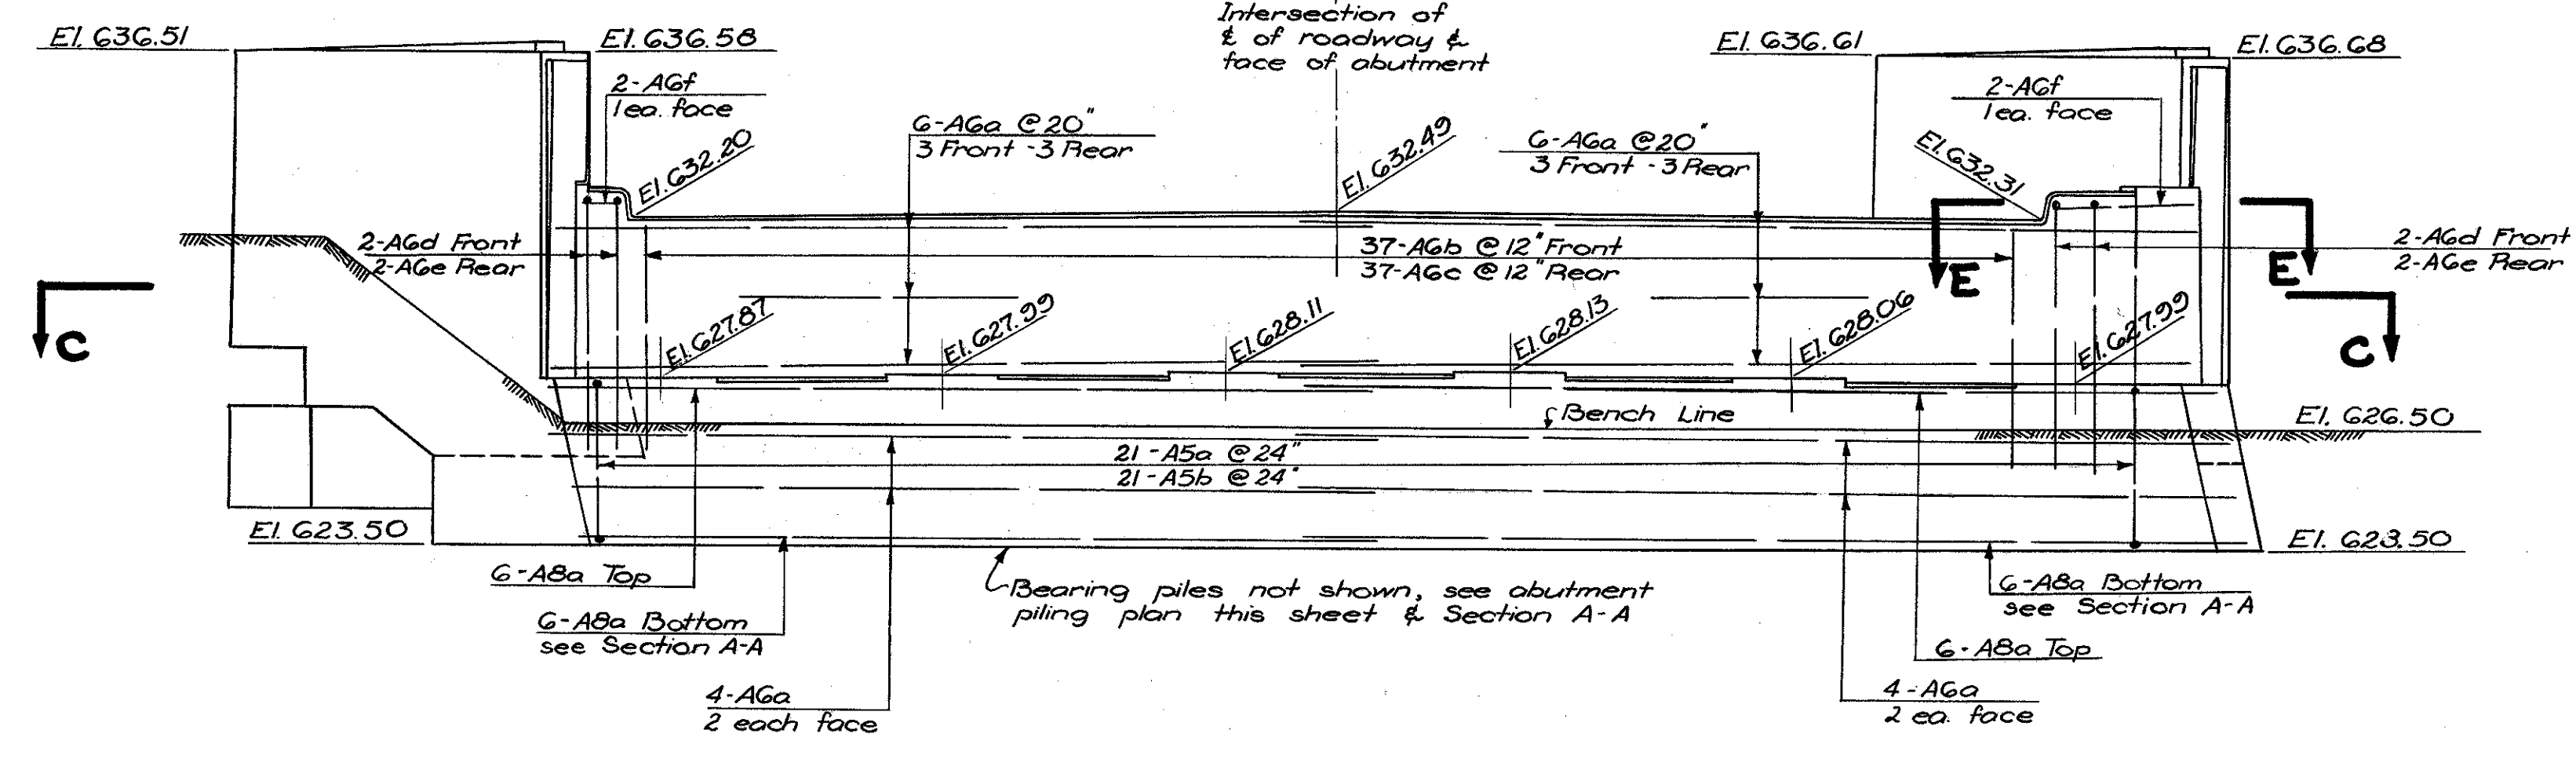 Intersection of
℄ of roadway &
face of abutment
El. 636.51
El. 636.58
El. 636.61
El. 636.68
2-A6f
1 ea. face
2-A6f
1 ea. face
6-A6a @ 20"
3 Front - 3 Rear
6-A6a @ 20"
3 Front - 3 Rear
El. 632.20
El. 632.49
El. 632.31
2-A6d Front
2-A6e Rear
37-A6b @ 12" Front
37-A6c @ 12" Rear
2-A6d Front
2-A6e Rear
E
E
C
C
El. 627.87
El. 627.99
El. 628.11
El. 628.13
El. 628.06
El. 627.99
Bench Line
El. 626.50
21-A5a @ 24"
21-A5b @ 24"
El. 623.50
El. 623.50
6-A8a Top
Bearing piles not shown, see abutment
piling plan this sheet & Section A-A
6-A8a Bottom
see Section A-A
6-A8a Bottom
see Section A-A
6-A8a Top
4-A6a
2 each face
4-A6a
2 ea. face